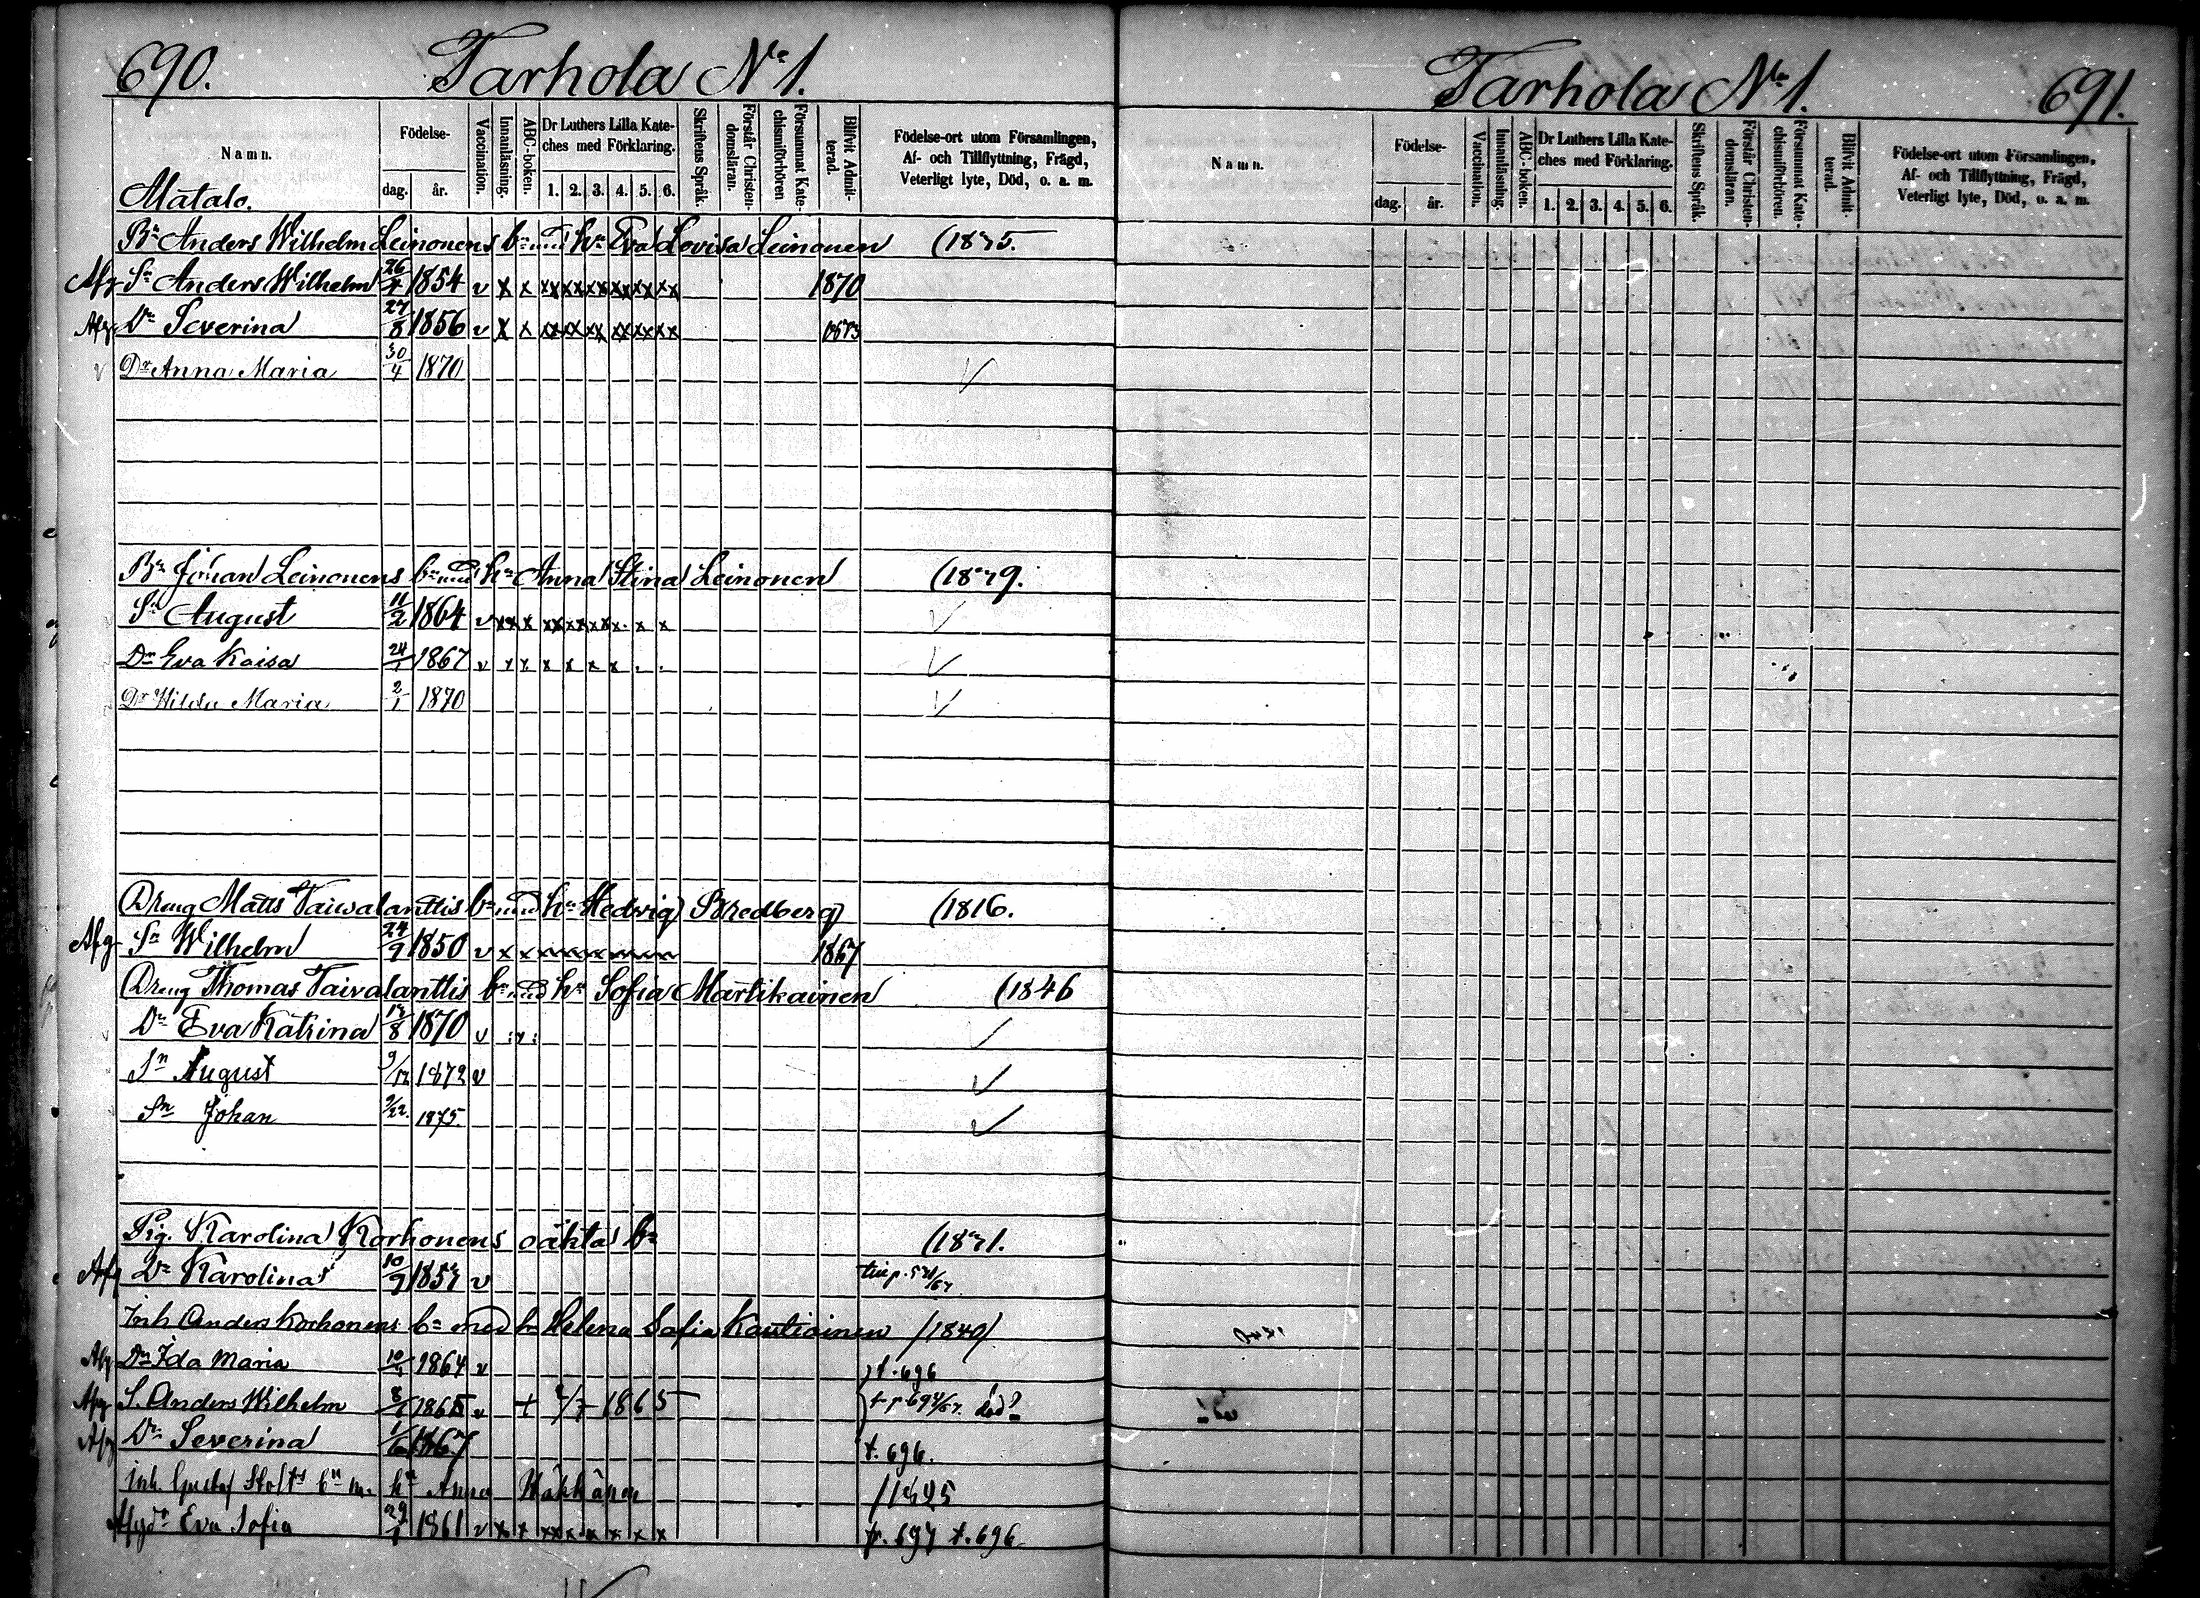 690. Tarhola No 1.
Namn. Födelse- dag. år. Vaccination. Innanläsning. ABC-boken. Dr Luthers Lilla Kateches med Förklaring. 1. 2. 3. 4. 5. 6. Skriftens Språk. Förstår Christendomsläran. Försummat Katechismiförhören Blifvit Admitterad. Födelse-ort utom Församlingen, Af- och Tillflyttning, Frägd, Veterligt lyte, Död, o. a. m.
Matalo.
Bn Anders Wilhelm Leinonens bn med hu Eva Lovisa Leinonen (1875.
Afg Sn Anders Wilhelm 1854 v x x xx xx xx xx xx xx 1870
Afg Dr Severina 27/8 1856 v x x xx xx xx xx xx xx 1873
v Dr Anna Maria 30/4 1870 ✓
Bn Johan Leinonens bn med hu Anna Stina Leinonen (1879.
Sn August 11/2 1864 v xx x xx xx xx x. x x ✓
Dr Eva Kaisa 24/1 1867 v x x x x x x . . ✓
Dr Hilda Maria 2/1 1870 ✓
Dräng Matts Taivalanttis bn med hu Hedvig Bredberg (1816.
Afg Sn Wilhelm 24/9 1850 v x x 1867
Dräng Thomas Taivalanttis bn med hu Sofia Martikainen (1846
Dr Eva Katrina 17/8 1870 v ✓
Sn August 9/12 1872 v ✓
Sn Johan 9/22. 1875. ✓
Pig. Karolina Korhonens oäkta bn (1871.
Afg Dr Karolina 10/9 1857 v
Inh Anders Korhonens bn med hu Helena Sofia Kautiainen /1840/
Afg Dr Ida Maria 1864 v t. 696
Afg S. Anders Wilhelm 1865 v + 1865 död?
Afg Dr Severina 1/6 1867 t. 696.
Inh. Gustaf Stolts bn m. hu Anna Häkkänen
Afg Dr Eva Sofia 29/1 1861 v x x xx x x x x x p. 697 t. 696
Tarhola No 1. 691.
Namn. Födelse- dag. år. Vaccination. Innanläsning. ABC-boken. Dr Luthers Lilla Kateches med Förklaring. 1. 2. 3. 4. 5. 6. Skriftens Språk. Förstår Christendomsläran. Försummat Katechismiförhören. Blifvit Admitterad. Födelse-ort utom Församlingen, Af- och Tillflyttning, Frägd, Veterligt lyte, Död, o. a. m.